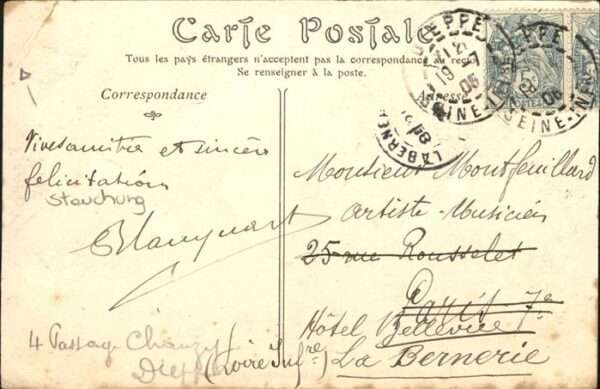 Carte Postale
Tous les pays étrangers n'acceptent pas la correspondance au recto
Se renseigner à la poste.
Correspondance
Adresse
DIEPPE
19 -7
05
SEINE-INFRE
DIEPPE
05
SEINE-INFRE
LA BERNERIE
Vives amitiés et sincères
felicitations
Blanquart
4 Passage Chanzy
Dieppe
Monsieur Montfeuillard
Artiste-Musicien
25 rue Rousselet
Paris 7e
Hôtel Bellevue
La Bernerie
(Loire Infre)